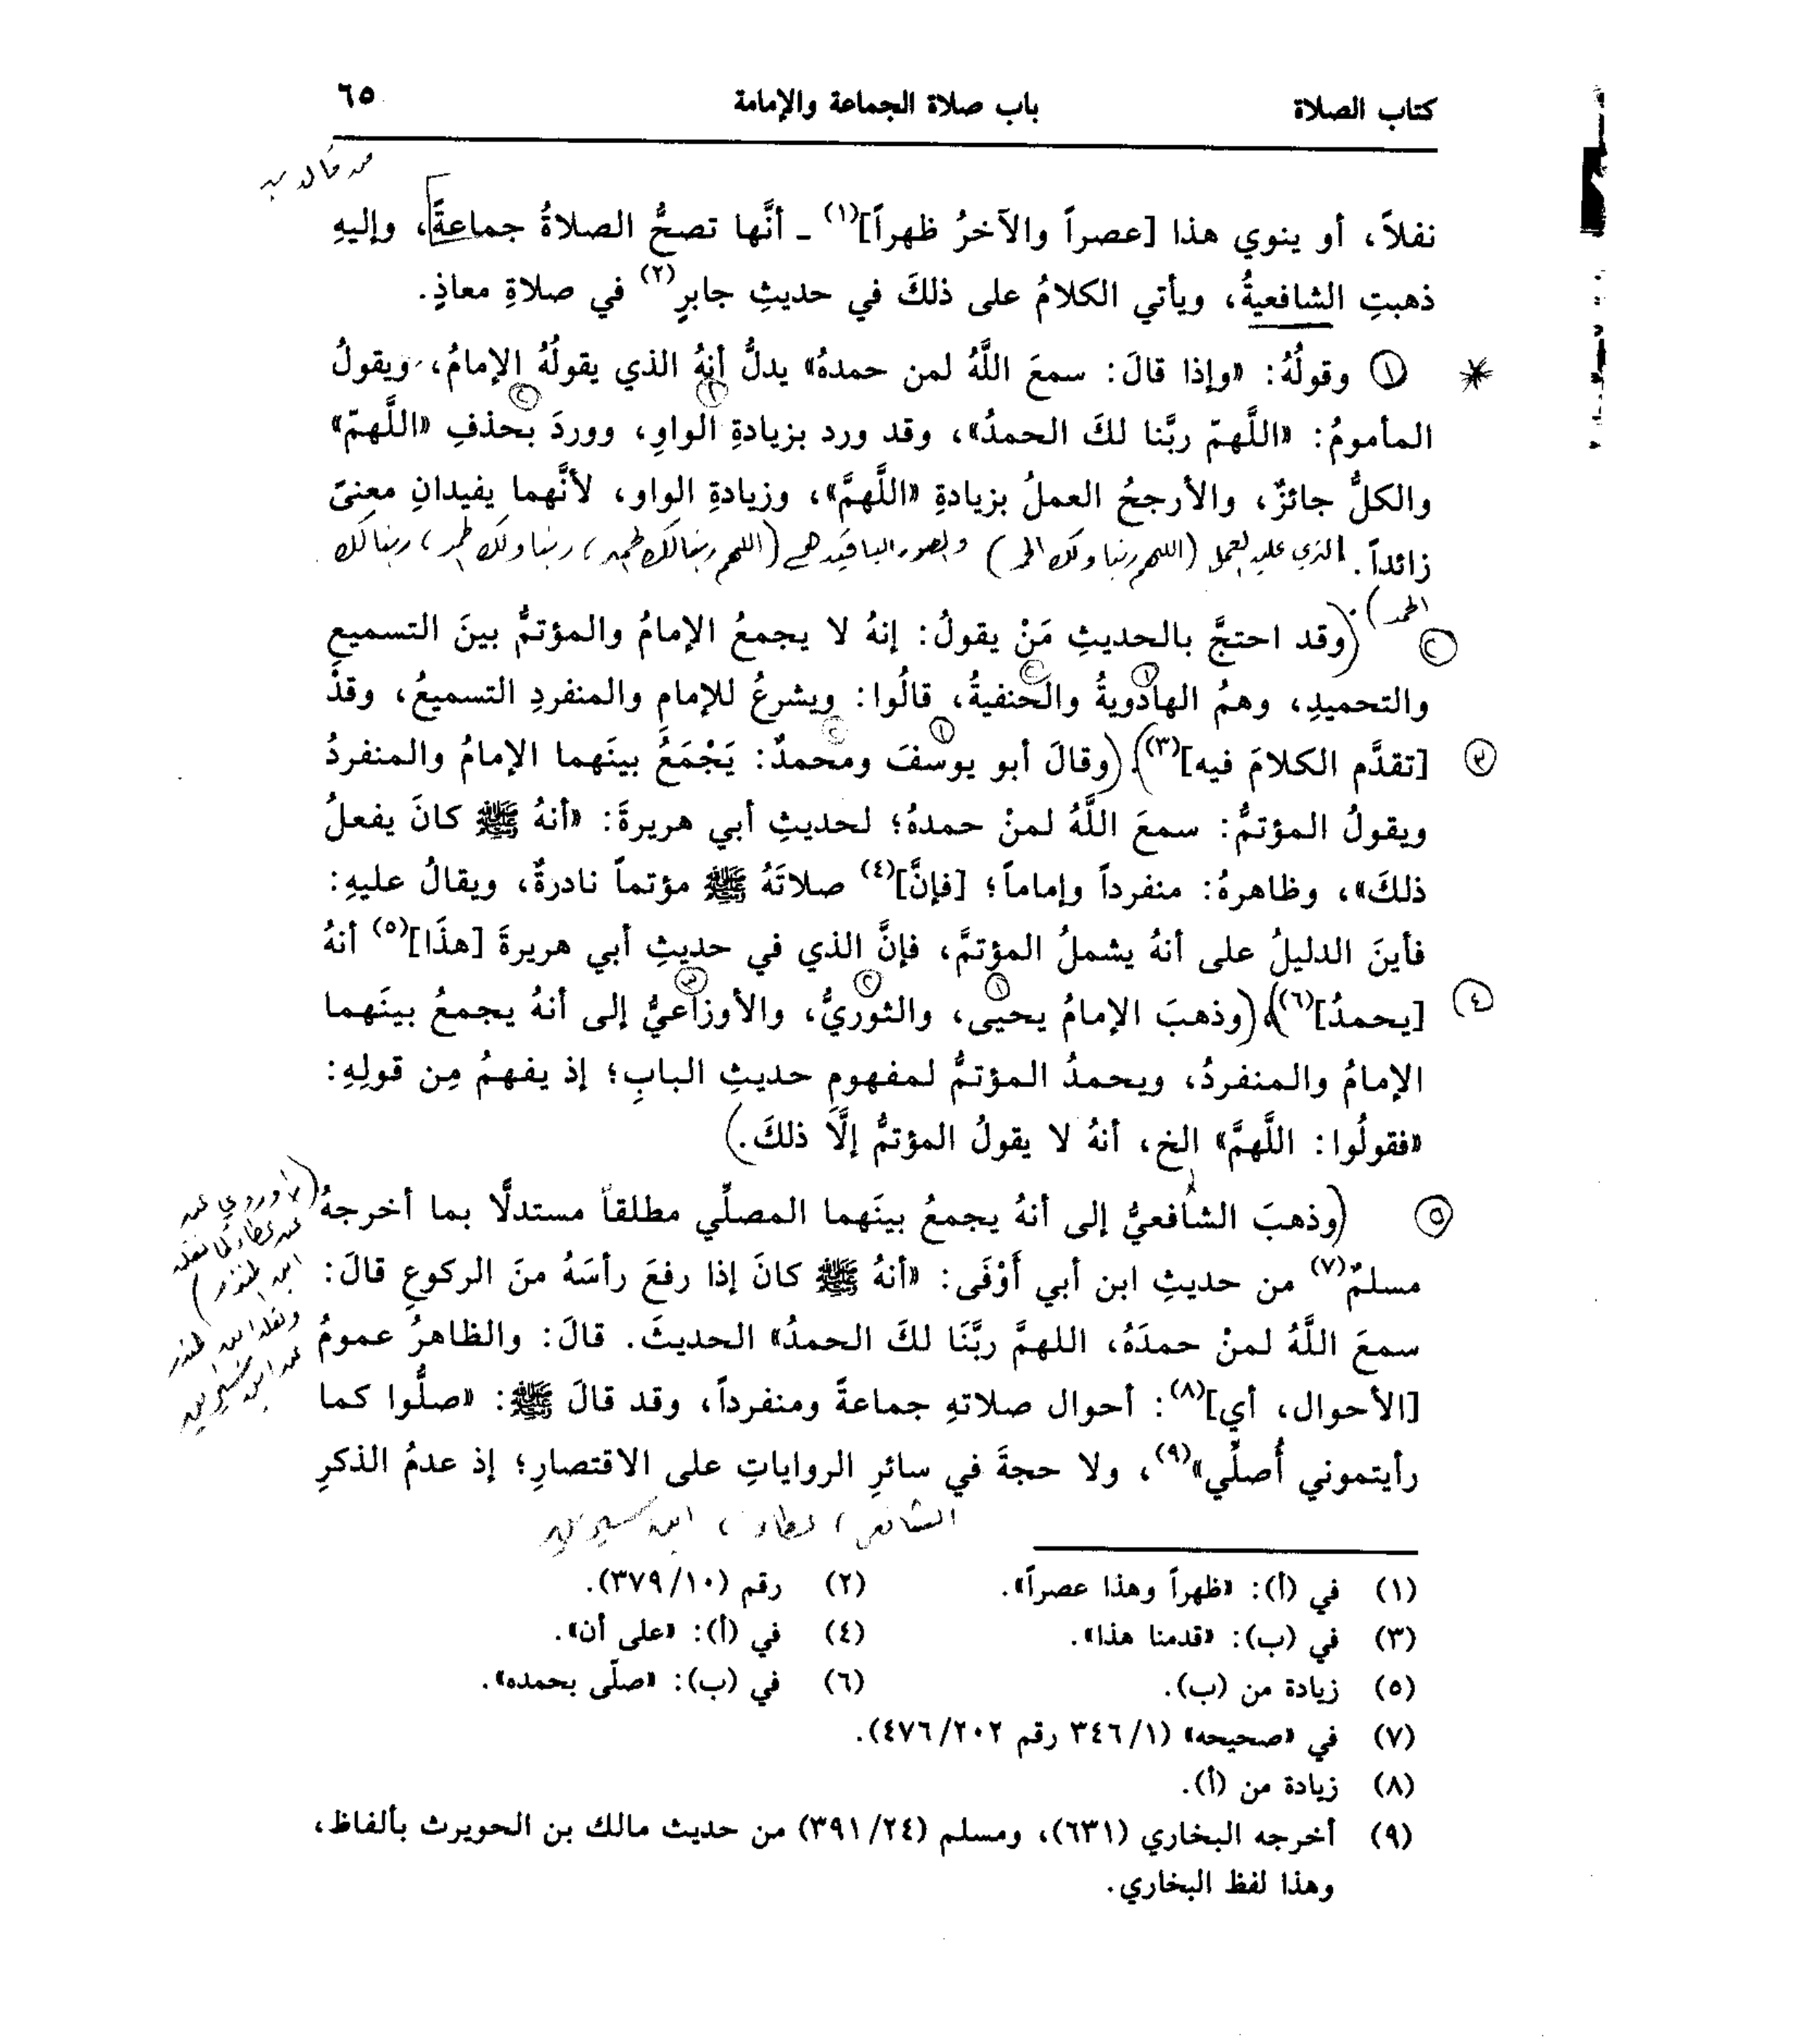 كتاب الصلاة باب صلاة الجماعة والإمامة ٦٥
نفلاً، أو ينوي هذا [عصراً والآخرُ ظهراً](١) ـ أنَّها تصحُّ الصلاةُ جماعةً، وإليهِ
ذهبتِ الشافعيةُ، ويأتي الكلامُ على ذلكَ في حديثِ جابرٍ(٢) في صلاةِ معاذٍ.
* ١ وقولُهُ: «وإذا قالَ: سمعَ اللَّهُ لمن حمدهُ» يدلُّ أنهُ الذي يقولُهُ الإمامُ، ويقولُ
المأمومُ: «اللَّهمّ ربَّنا لكَ الحمدُ»، وقد ورد بزيادةِ الواوِ، ووردَ بحذفِ «اللَّهمّ»
والكلُّ جائزٌ، والأرجحُ العملُ بزيادةِ «اللَّهمَّ»، وزيادةِ الواو، لأنَّهما يفيدانِ معنىً
زائداً. الذي عليه العمل (اللهم ربنا ولك الحمد) والصور الباقية هي (اللهم ربنا لك الحمد، ربنا ولك الحمد، ربنا لك
الحمد).
٢ (وقد احتجَّ بالحديثِ مَنْ يقولُ: إنهُ لا يجمعُ الإمامُ والمؤتمُّ بينَ التسميعِ
والتحميدِ، وهمُ الهادويةُ والحنفيةُ، قالُوا: ويشرعُ للإمامِ والمنفردِ التسميعُ، وقدْ
٣ [تقدَّم الكلامَ فيه](٣)). (وقالَ أبو يوسفَ ومحمدٌ: يَجْمَعُ بينَهما الإمامُ والمنفردُ
ويقولُ المؤتمُّ: سمعَ اللَّهُ لمنْ حمدهُ؛ لحديثِ أبي هريرةَ: «أنهُ ﷺ كانَ يفعلُ
ذلكَ»، وظاهرهُ: منفرداً وإماماً؛ [فإنَّ](٤) صلاتَهُ ﷺ مؤتماً نادرةٌ، ويقالُ عليهِ:
فأينَ الدليلُ على أنهُ يشملُ المؤتمَّ، فإنَّ الذي في حديثِ أبي هريرةَ [هذَا](٥) أنهُ
٤ [يحمدُ](٦)). (وذهبَ الإمامُ يحيى، والثوريُّ، والأوزاعيُّ إلى أنهُ يجمعُ بينَهما
الإمامُ والمنفردُ، ويحمدُ المؤتمُّ لمفهومِ حديثِ البابِ؛ إذ يفهمُ مِن قولِهِ:
«فقولُوا: اللَّهمَّ» الخ، أنهُ لا يقولُ المؤتمُّ إلَّا ذلكَ.)
٥ (وذهبَ الشافعيُّ إلى أنهُ يجمعُ بينَهما المصلِّي مطلقاً مستدلًا بما أخرجهُ
مسلمٌ(٧) من حديثِ ابن أبي أَوْفَى: «أنهُ ﷺ كانَ إذا رفعَ رأسَهُ منَ الركوعِ قالَ:
سمعَ اللَّهُ لمنْ حمدَهُ، اللهمَّ ربَّنَا لكَ الحمدُ» الحديثَ. قالَ: والظاهرُ عمومُ
[الأحوال، أي](٨): أحوال صلاتهِ جماعةً ومنفرداً، وقد قالَ ﷺ: «صلُّوا كما
رأيتموني أُصلِّي»(٩)، ولا حجةَ في سائرِ الرواياتِ على الاقتصارِ؛ إذ عدمُ الذكرِ
الشافعي، عطاء، ابن سيرين
(١) في (أ): «ظهراً وهذا عصراً». (٢) رقم (٣٧٩/١٠).
(٣) في (ب): «قدمنا هذا». (٤) في (أ): «على أن».
(٥) زيادة من (ب). (٦) في (ب): «صلّى بحمده».
(٧) في «صحيحه» (٣٤٦/١ رقم ٤٧٦/٢٠٢).
(٨) زيادة من (أ).
(٩) أخرجه البخاري (٦٣١)، ومسلم (٣٩١/٢٤) من حديث مالك بن الحويرث بألفاظ،
وهذا لفظ البخاري.